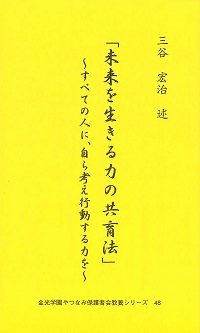 三谷 宏治 述
「未来を生きる力の共育法」
～すべての人に、自ら考え行動する力を～
金光学園やつなみ保護者会教養シリーズ 48